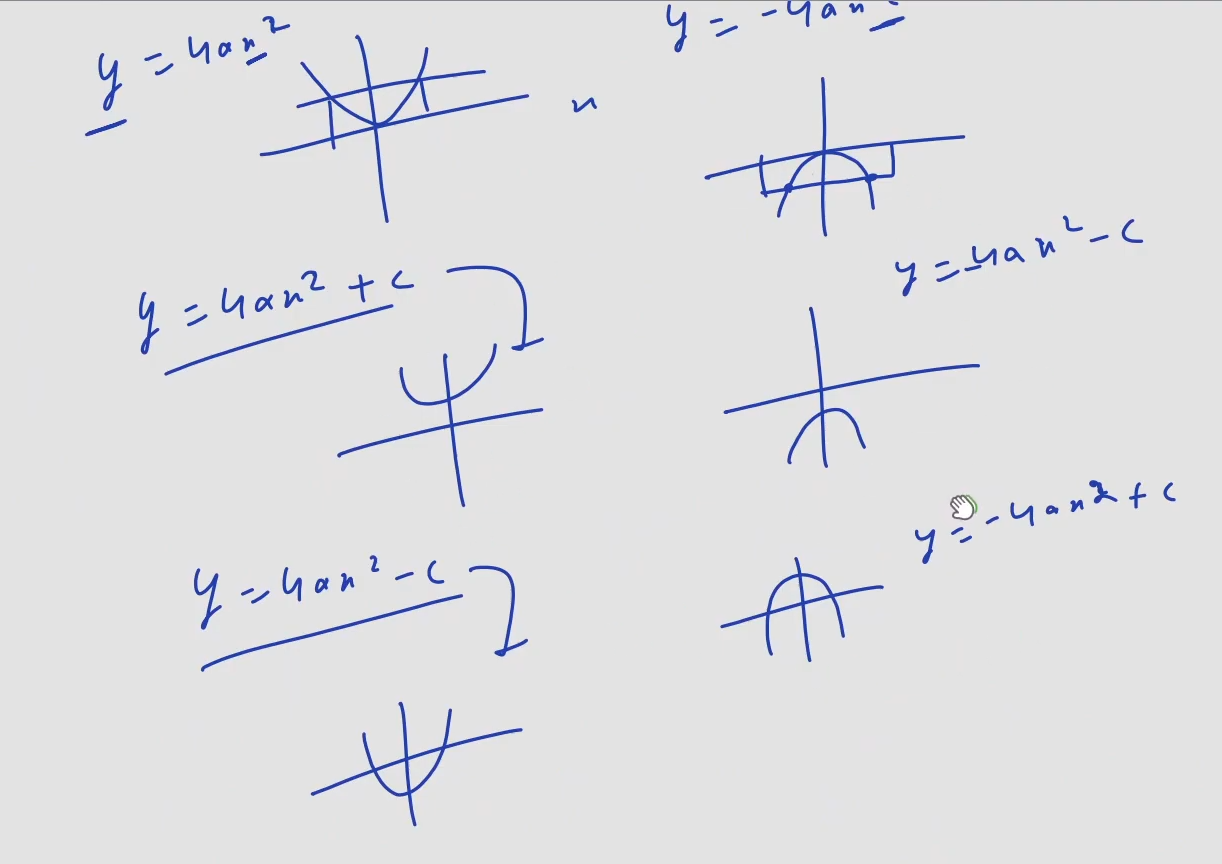 y = 4ax²
y = -4ax²
x
y = 4ax² + c
y = -4ax² - c
y = -4ax² + c
y = 4ax² - c